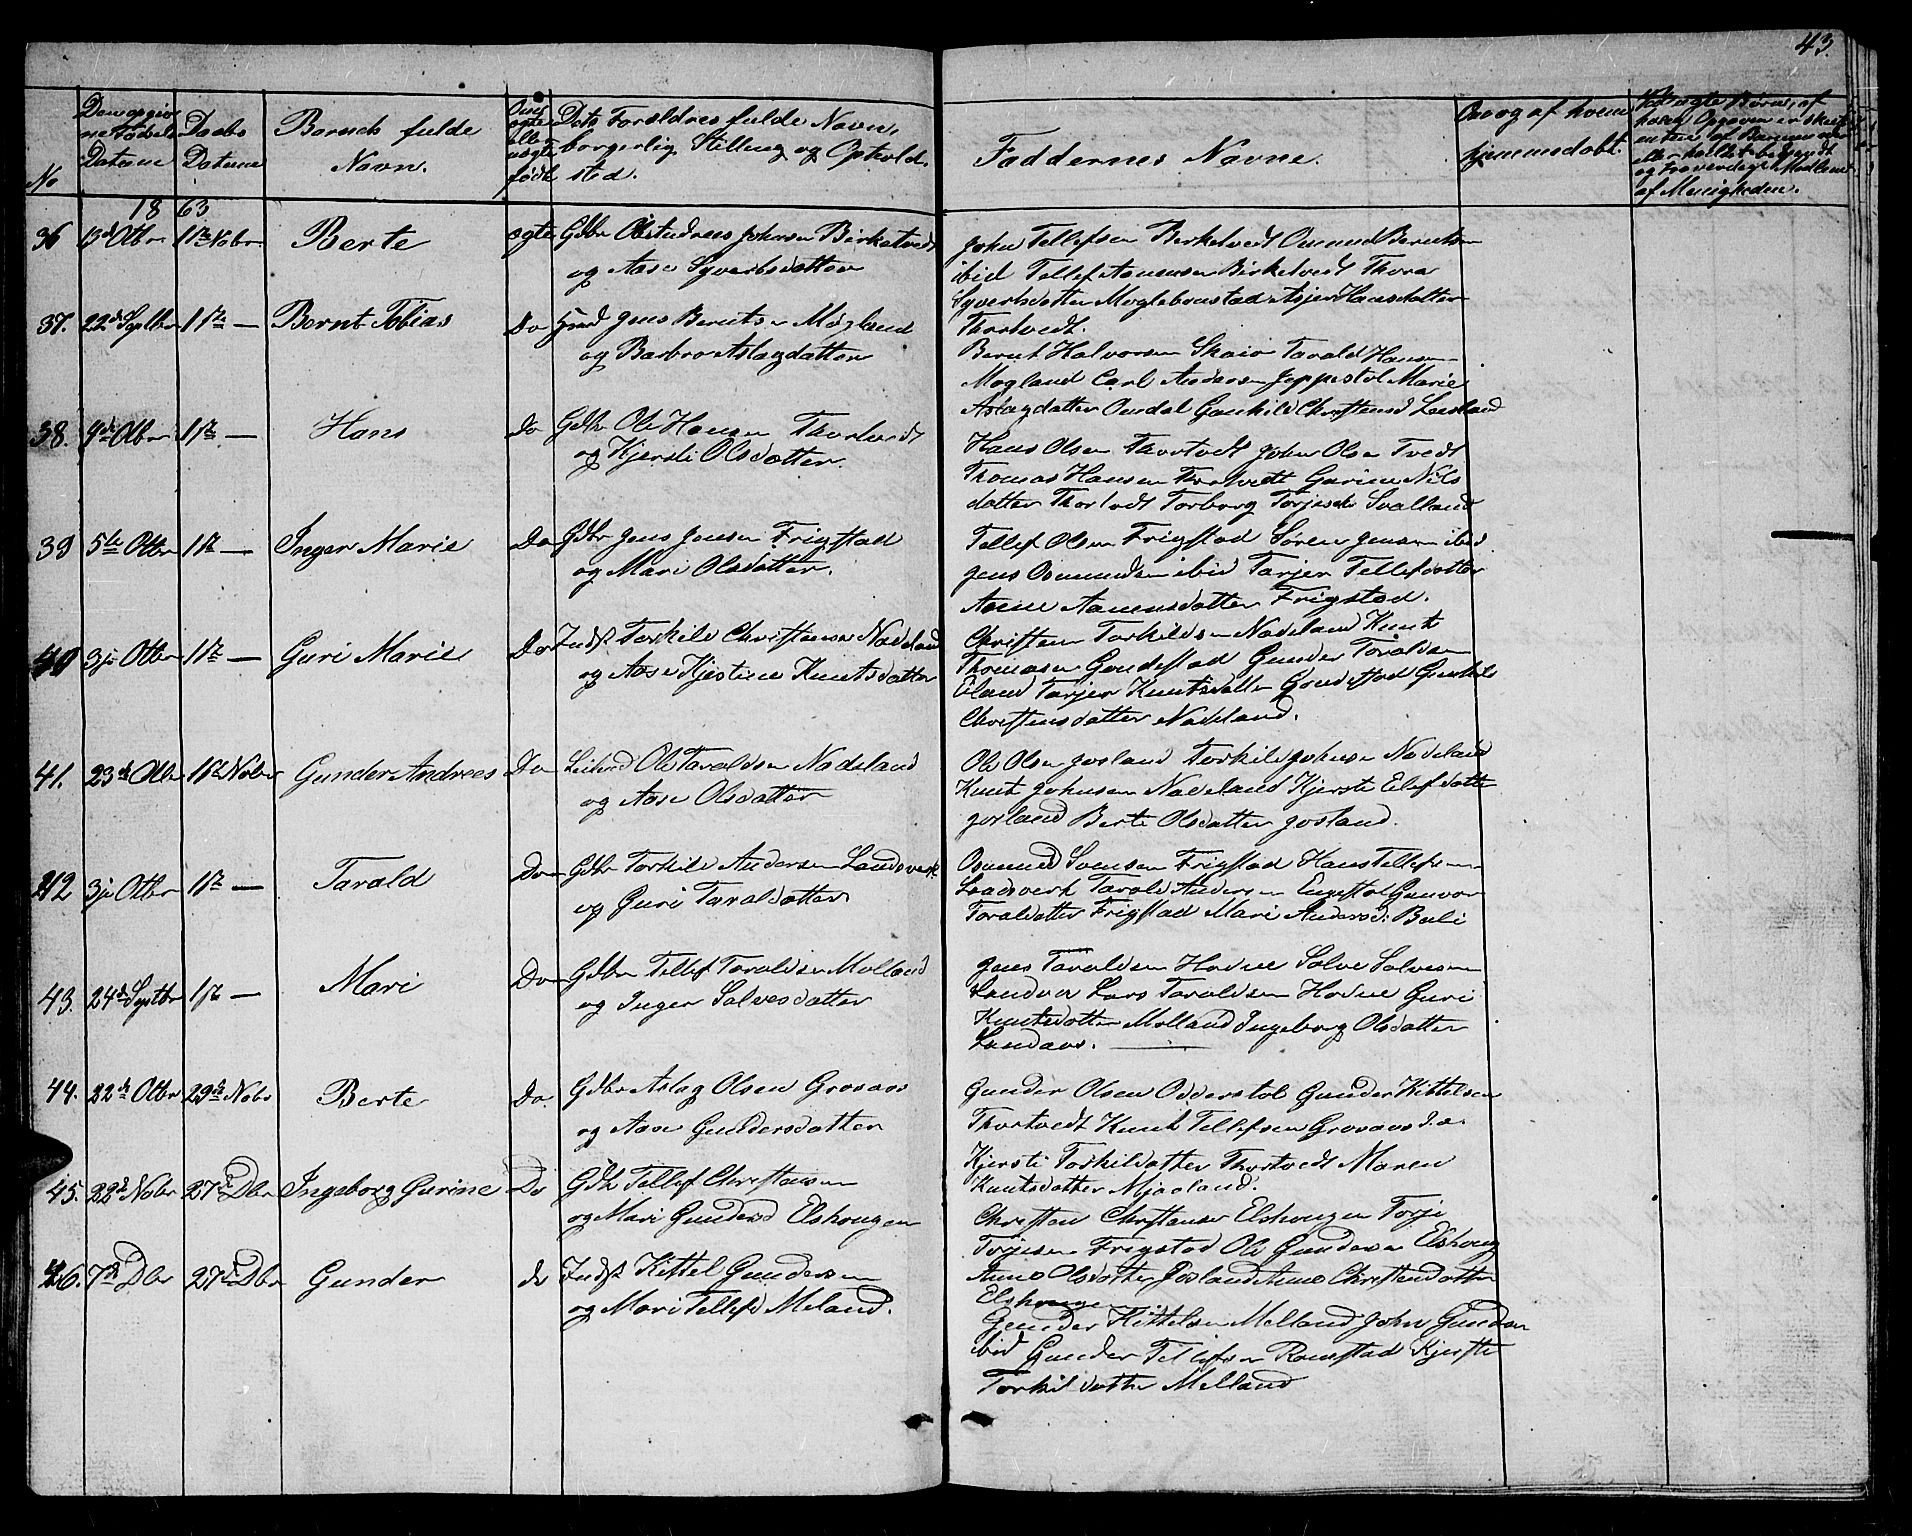 43.
No
Datum
Daabs
Datum
Barnets fulde
Navn.
Dets Forældres fulde Navn,
borgerlig Stilling og Ophold
sted.
Faddernes Navne.
Om og af hvem
hjemmedøbt.
af Menigheden.
1863
36 13d Otbr 1ste Nobr Berte ægte Gdbr Johnsen Birketvedt
og Aase Syvertsdatter
John Tellefsen Birketvedt Omund Berntsen
ibid Tellef Aanensen Birkelvedt Thora
Syvertsdatter Moglebonstad Asjer Hansdatter
Thortvedt.
37. 22d Septbr 1ste — Bernt Tobias Do Jens Berntsen Møgland
og Barbro Aslagdatter
Bernt Halvorsen Skaio Tarald Hansen
Mogland Carl Andersen Jeppestøl Marie
Aslagdatter Omdal Gunhild Christensd Lusland
38. 9d Otbr 1ste — Hans Do Gdbr Ole Hansen Thortvedt
og Kjersti Olsdatter.
Hans Olsen Thortvedt John Olsen Tvedt
Thomas Hansen Tvedt Gurine Nils
datter Thortvedt Torborg Torjesdr Svaland
39 5te Otbr 1ste — Inger Marie Do Gdbr Jens Jensen Frigstad
og Mari Olsdatter.
Tellef Olsen Frigstad Søren Jensen ibid
Jens Osmundsen ibid Tarjer Tellefsdatter
Anne Aanensdatter Frigstad.
40 3je Otbr 1ste — Guri Marie Do Indst Torkild Christensen Nadeland
og Aase Kjestine Knutsdatter
Christen Torkildsen Nadeland Knut
Thomasen Gundestad Gunder Taraldsen
Eland Tarjer Knutsdatter Gundestad Gunhild
Christensdatter Nadeland.
41. 23d Otbr 1ste Nobr Gunder Andreas Do Leilend Ole Taraldsen Nadeland
og Aase Olsdatter
Ole Olsen Josland Torkild Johnsen Nadeland
Knut Johnsen Nadeland Kjersti Elefsdatter
Josland Berte Olsdatter Josland.
42 3je Otbr 1ste — Tarald Do Gdbr Torkild Andersen Landsverk
og Guri Taraldsdatter
Osmund Svensen Frigstad Hans Tellefsen
Landsverk Tarald Andersen Engestøl Gunvor
Taraldsdatter Frigstad Mari Andersd. Beli
43. 24d Septbr 1ste — Mari Do Gdbr Tellef Taraldsen Molland
og Inger Salvesdatter
Jens Taraldsen Hodne Salve Salvesen
Landaas Lars Taraldsen Hodne Guri
Knutsdatter Molland Ingeborg Olsdatter
Landaas.
44. 22d Otbr 29d Nobr Berte Do. Gdbr Aslag Olsen Grosaas
og Aase Gundersdatter
Gunder Olsen Odderstøl Gunder Kittelsen
Thortvedt Knut Tellefsen Grosaas
Kjersti Torkildsdatter Thortvedt Maren
Knutsdatter Mjaaland.
45. 22d Nobr 27d Dbr Ingeborg Gurine Do Gdbr Tellef Christensen
og Mari Gundersd Elshougen
Christen Christensen Elshougen Torje
Torjesen Frigstad Ole Gundersen Elshoug
Anne Olsdatter Josland Anne Christensdatter
Elshougen
46. 7d Dbr 27d Dbr Gunder do Indst Kittel Gundersen
og Mari Tellefsd Meland.
Gunder Kittelsen Melland John Gundersen
ibid Gunder Tellefsen Ronestad Kjersti
Torkildsdatter Melland